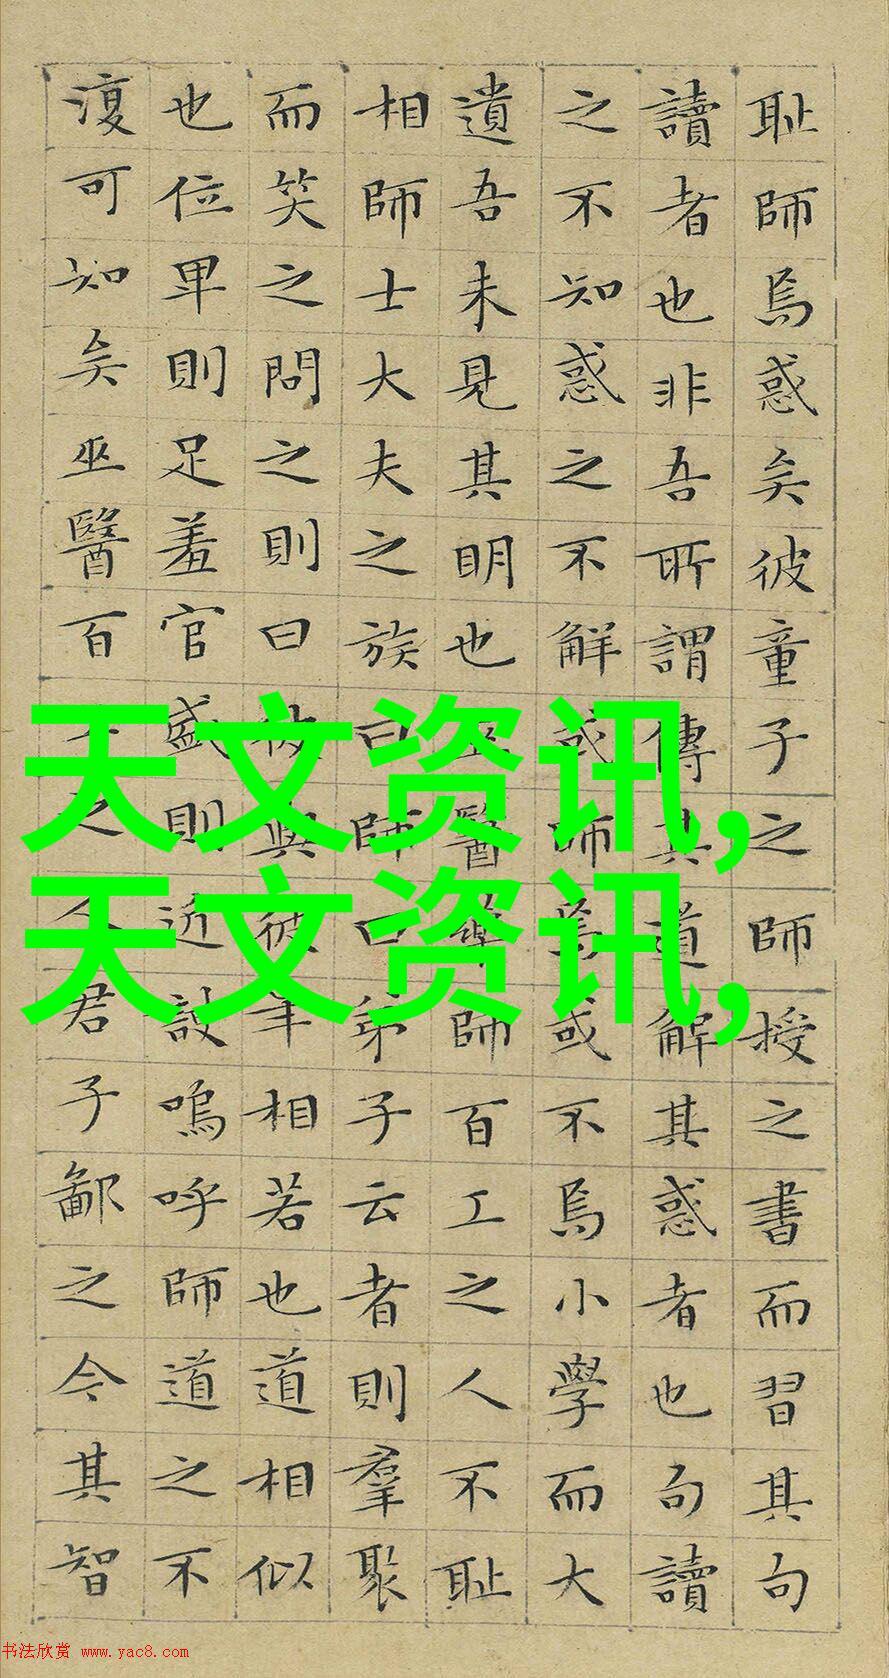 耻師焉惑矣彼童子之師授之書而習其句
讀者也非吾所謂傳其道解其惑者也句讀
之不知惑之不解或師焉或不焉小學而大
遺吾未見其明也巫醫樂師百工之人不耻
相師士大夫之族曰師曰弟子云者則羣聚
而笑之問之則曰彼與彼年相若也道相似
也位卑則足羞官盛則近諛嗚呼師道之不
復可知矣巫醫百之君子鄙之今其智
天文资讯,
天文资讯,
书法欣赏 www.yac8.com